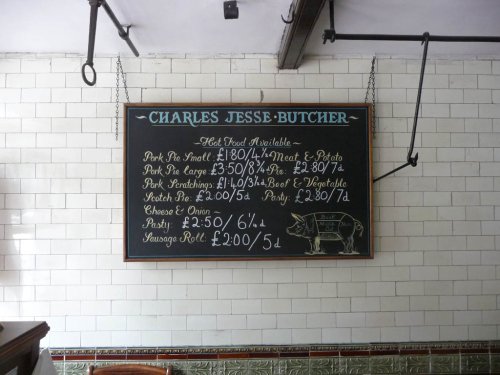 CHARLES JESSE · BUTCHER
~Hot Food Available~
Pork Pie Small: £1·80/4½d
Pork Pie Large £3·50/8¾d
Pork Scratchings £1·40/3½d
Scotch Pie: £2·00/5d
Cheese & Onion~
Pasty: £2·50/6¼d
Sausage Roll: £2·00/5d
Meat & Potato
Pie: £2·80/7d
Beef & Vegetable
Pasty: £2·80/7d